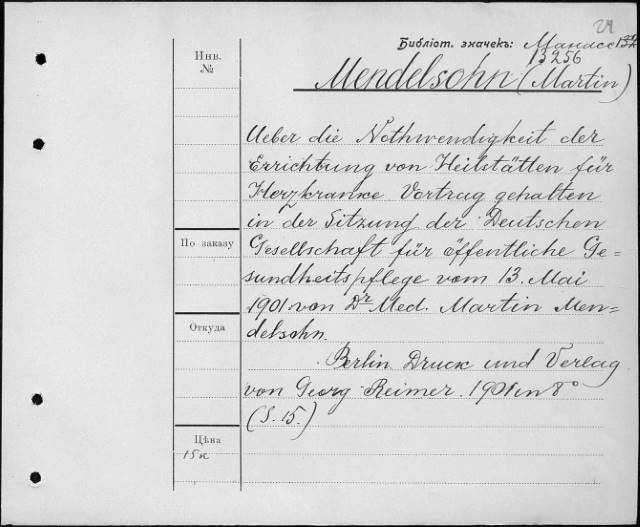 Библіот. значекъ:
13256
Инв.
№
Mendelsohn (Martin)
Ueber die Nothwendigkeit der
Errichtung von Heilstätten für
Herzkranke Vortrag gehalten
in der Sitzung der Deutschen
По заказу
Gesellschaft für öffentliche Ge=
sundheitspflege vom 13. Mai
1901 von Dr Med. Martin Men=
Откуда
delsohn.
Berlin Druck und Verlag
von Georg Reimer. 1901 in 8°
(S. 15.)
Цѣна
15к